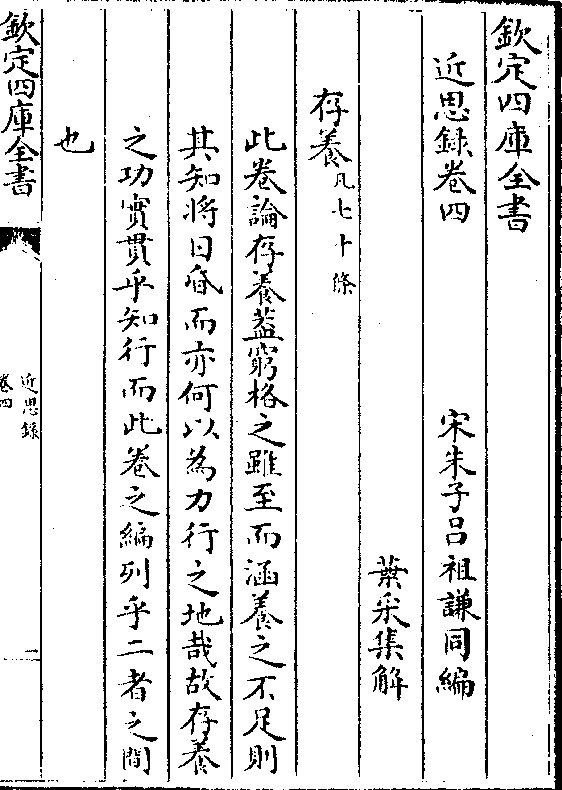 欽定四庫全書
近思錄卷四
宋朱子呂祖謙同編
葉采集解
存養凡七十條
此卷論存養蓋窮格之雖至而涵養之不足則
其知將日昏而亦何以為力行之地哉故存養
之功實貫乎知行而此卷之編列乎二者之間
也
欽定四庫全書
近思錄
卷四
二